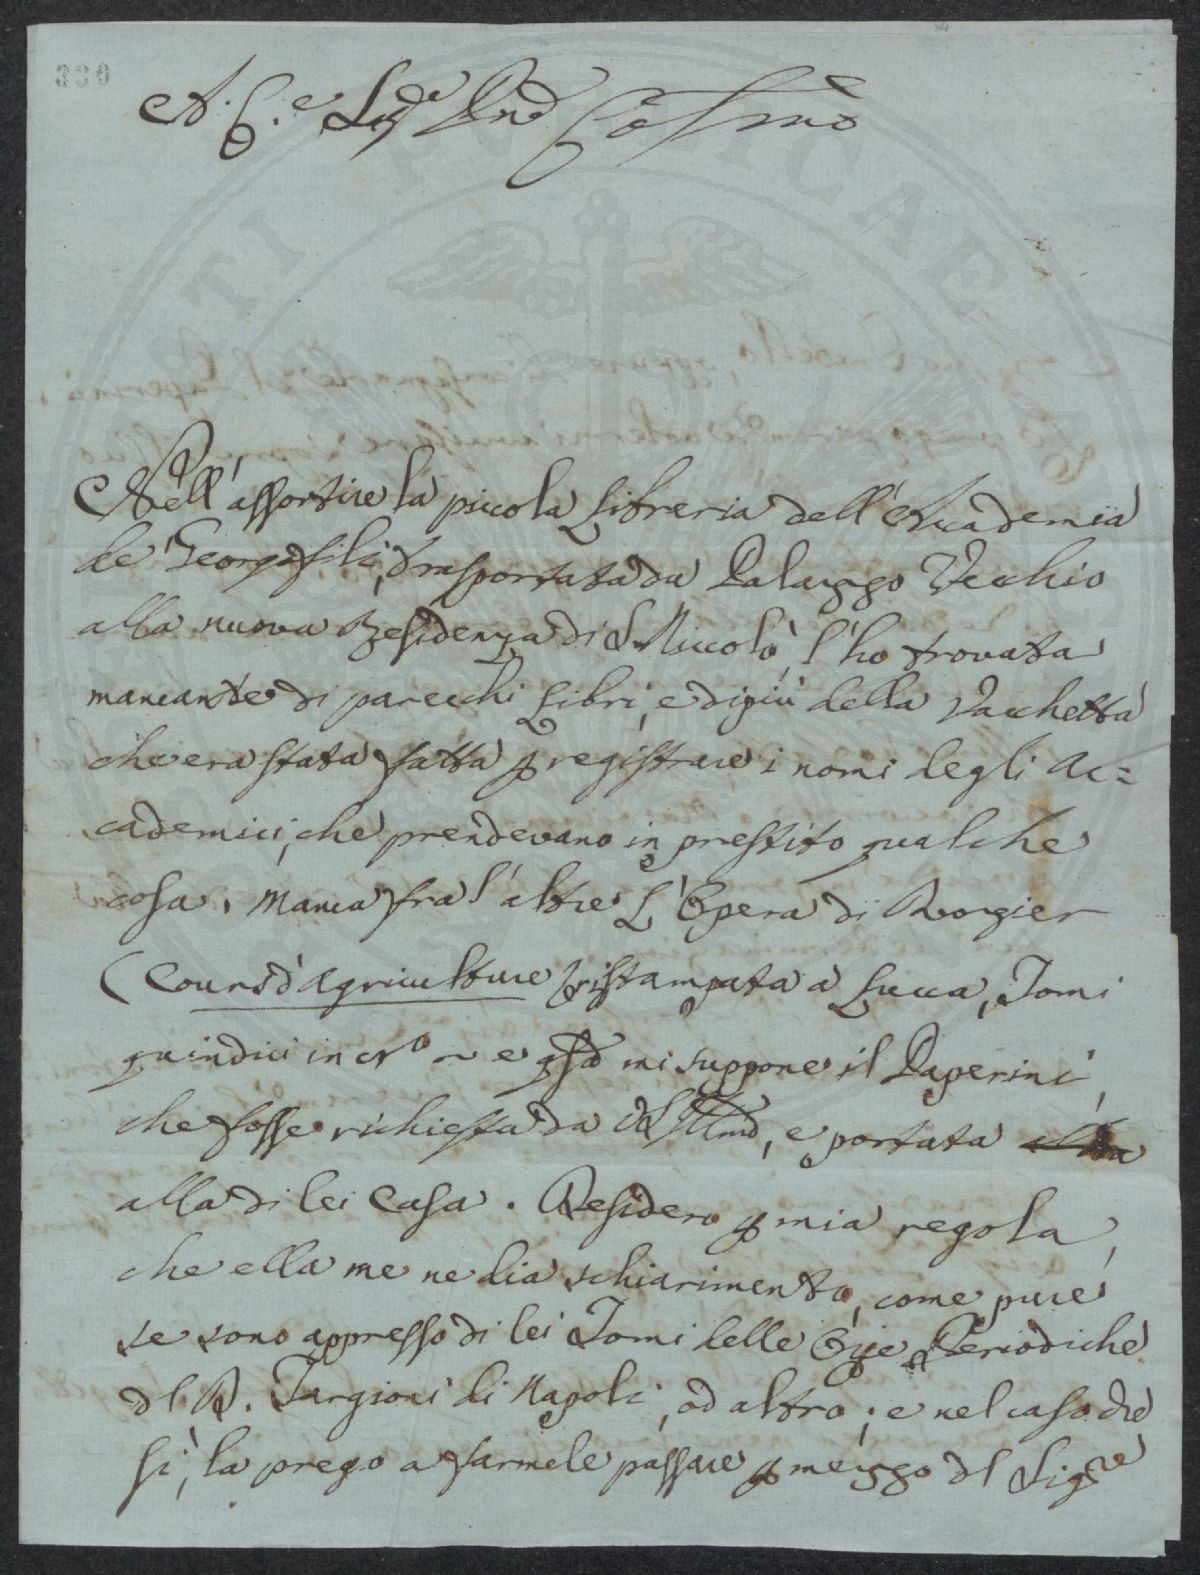 330
A. C. e Sig.re Pne Colmo
Nell'assortire la piccola Libreria dell'Accademia
de' Georgofili, trasportata da Palazzo Vecchio
alla nuova Residenza di S. Niccolò, l'ho trovata
mancante di parecchi Libri, e di più della Vacchetta
che era stata fatta p registrare i nomi degli Ac=
cademici, che prendevano in prestito qualche
cosa. Manca fra l'altre L'Opera di Rozier
(Cours d'Agriculture) ristampata a Lucca, Tomi
quindici in 8.º ~ e qsta mi suppone il Paperini,
che fosse richiesta da VS Illma, e portata
alla di lei Casa. Desidero p mia regola,
che ella me ne dia schiarimento, come pure
se sono appresso di lei Tomi delle Opje Periodiche
dl D. Targioni di Napoli, od altro; e nel caso che
sì, la prego a farmele passare p mezzo dl Sigre